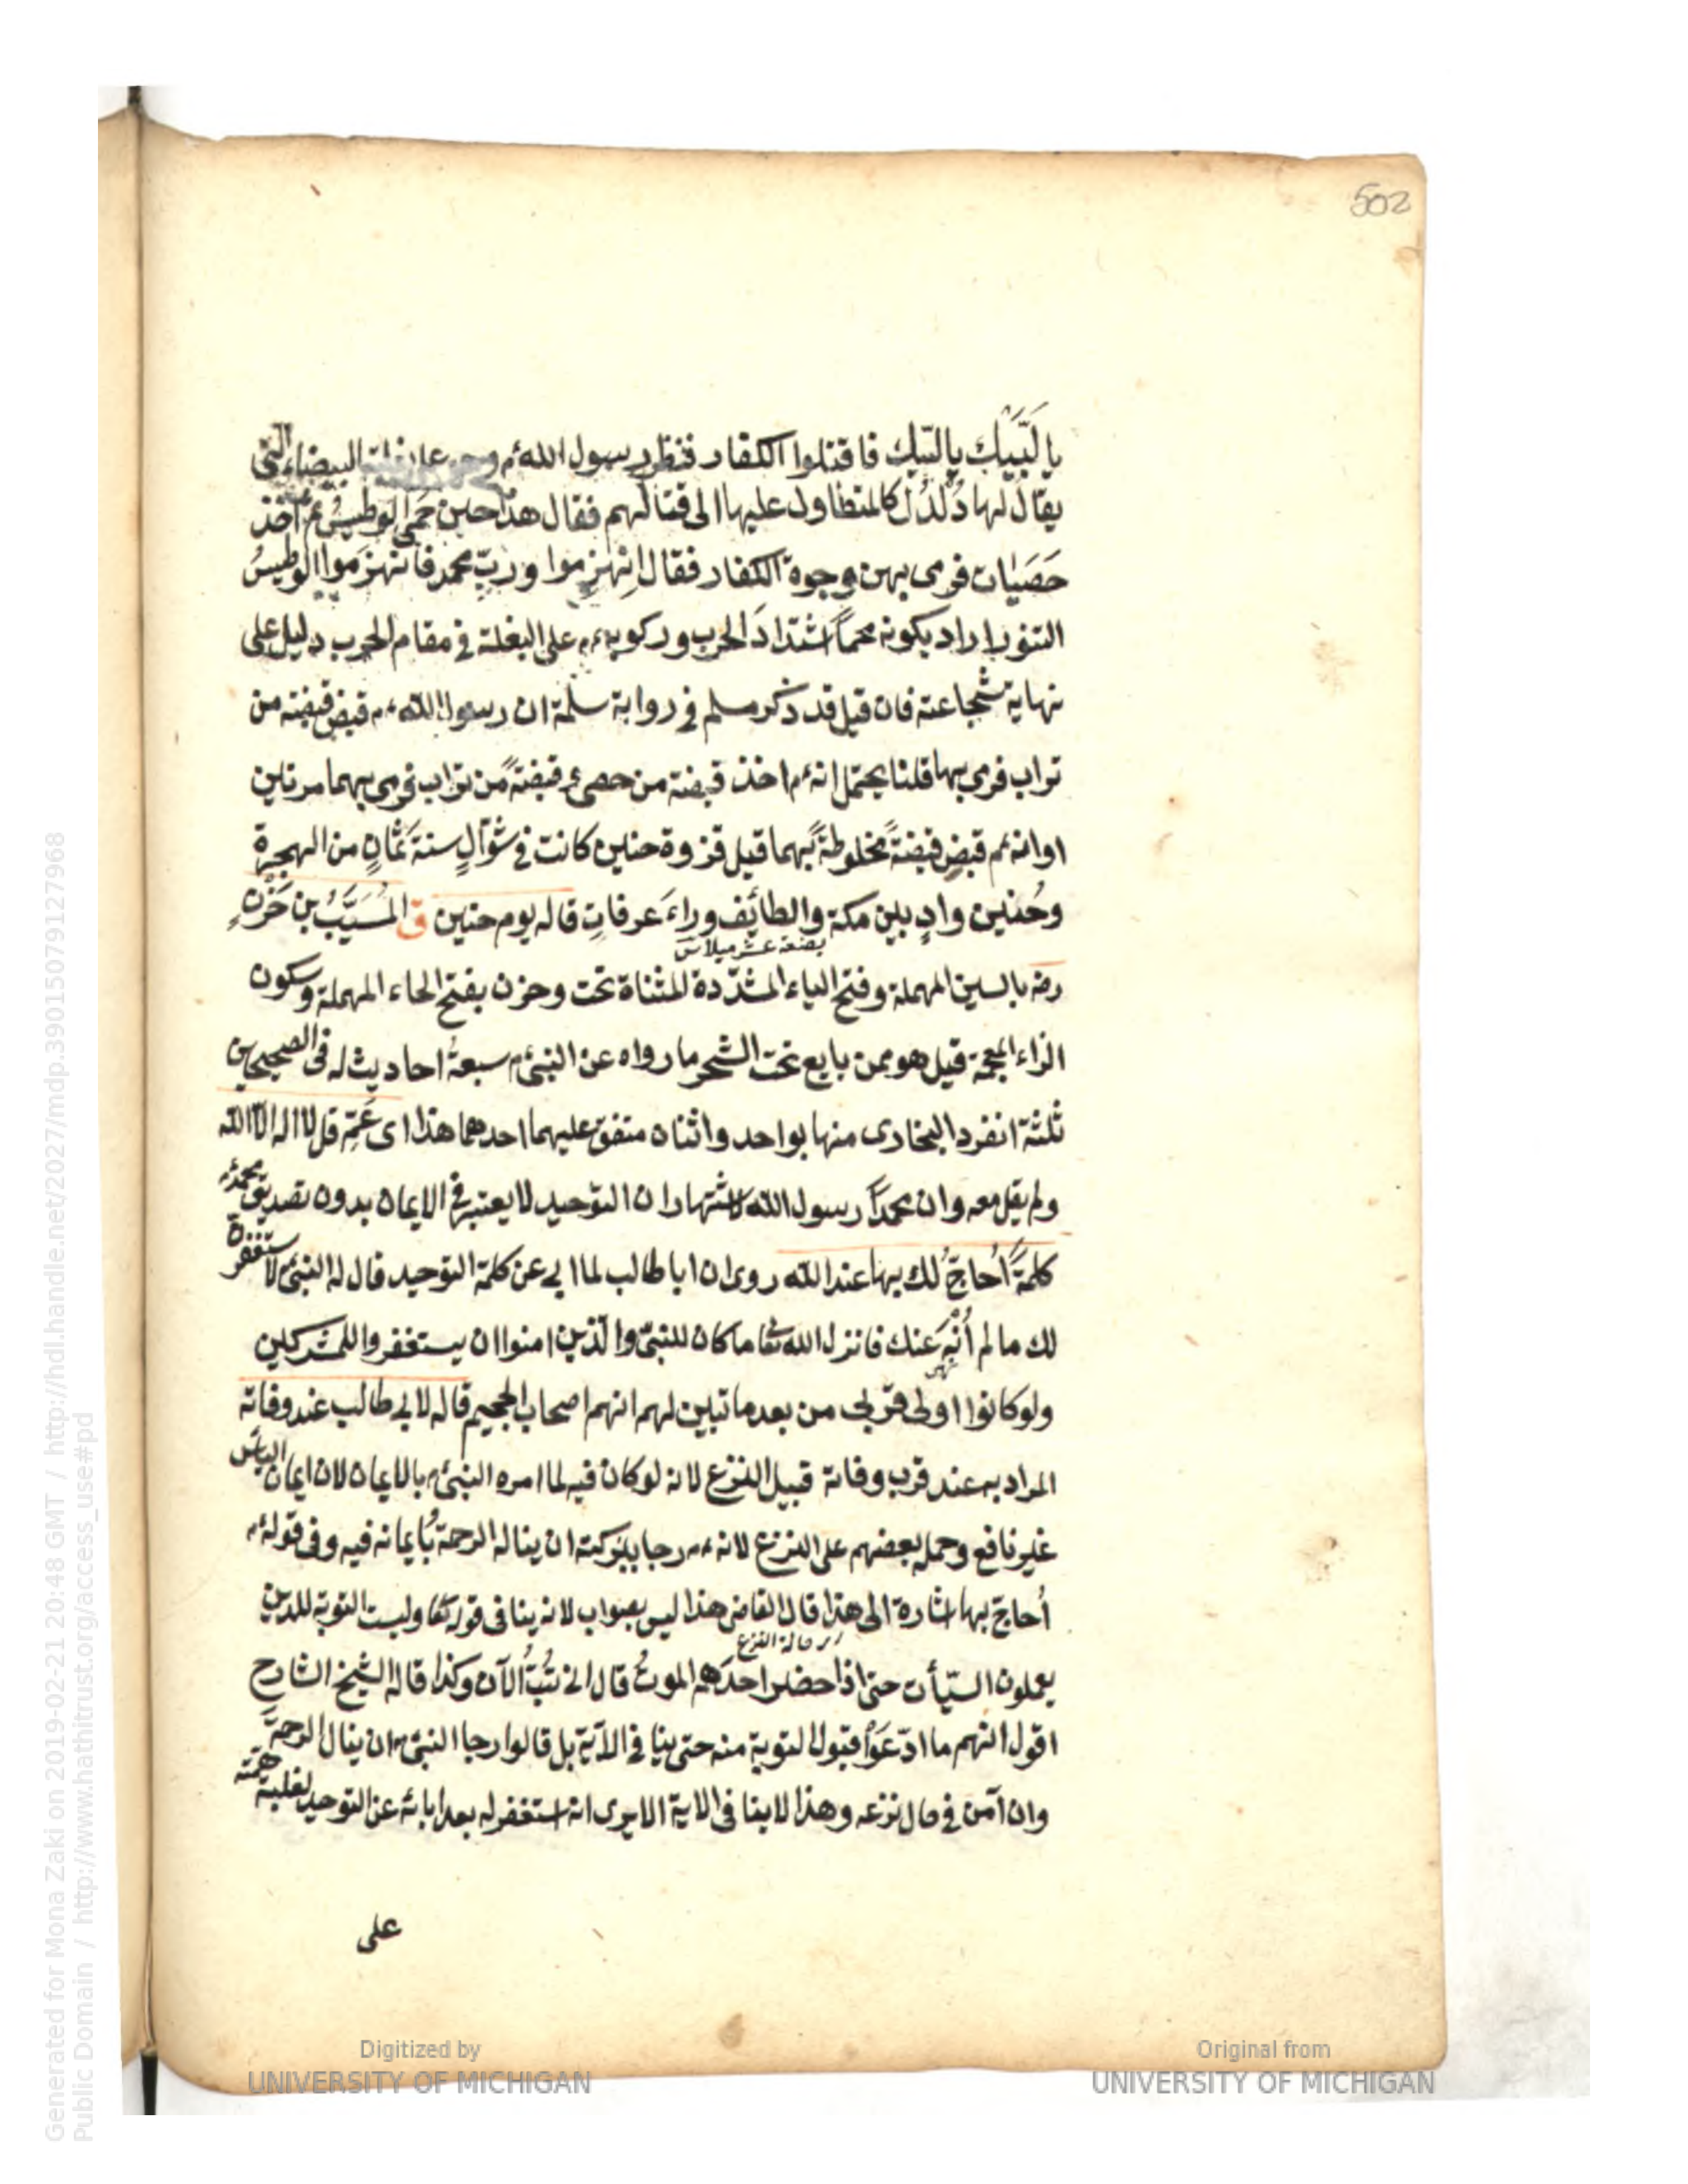 502
يا لَبَّيك يا لبّيك فاقتلوا الكفار فنظر رسول الله م وهو على بغلته البيضاء التى
يقال لها دُلْدُل كالمتطاول عليها الى قتالهم فقال هذا حين حَمِىَ الوطيسُ ثم اخذ
حَصَيات فرمى بهن وجوه الكفار فقال اِنْهزِموا وربّ محمد فانهزموا الوطيسُ
التنور اراد بكونه محماً اشتدادَ الحرب وركوبه عم على البغلة فى مقام الحرب دليل على
نهاية شجاعته فان قيل قد ذكر مسلم فى رواية سلمة ان رسول الله عم قبض قبضة من
تراب فرمى بها قلنا يحتمل انه عم اخذ قبضة من حصىً وقبضةً من تراب فرمى بهما مرتين
او انه عم قبض قبضةً مخلوطةً بهما قيل غزوة حنين كانت فى شوّالٍ سنةَ ثمانٍ من الهجرة
وحُنين وادٍ بين مكة والطائف وراءَ عرفاتٍ قاله يوم حنين ق المُسَيَّبُ بن حَزْنٍ
بضعة عشر ميلا
رضه بالسين المهملة وفتح الياء المشدّدة المثناة تحت وحزن بفتح الحاء المهملة وسكون
الزاء المعجمة قيل هو ممن بايع تحت الشجر ما رواه عن النبى م سبعةُ احاديث له فى الصحيحين
ثلثة انفرد البخارى منها بواحد واثنان متفق عليهما احدهما هذا اى عَمِّ قل لا اله الّا الله
ولم يقل معه وان محمداً رسول الله لاشتهار ان التوحيد لا يعتبر فى الايمان بدون تصديق محمد م
كلمةً اُحاجُّ لك بها عند الله روى ان ابا طالب لما ابى عن كلمة التوحيد قال له النبى م لاستغفرنّ
لك ما لم اُنْهَ عنك فانزل الله تعا ما كان للنبىّ والّذين امنوا ان يستغفروا للمشركين
ولو كانوا اولى قربى من بعد ما تبين لهم انهم اصحاب الجحيم قاله لابى طالب عند وفاته
المراد به عند قرب وفاته قبيل النزع لانه لو كان فيه لما امره النبى م بالايمان لان ايمان الياس
غير نافع وحمله بعضهم على النزع لانه عم رجا ببركته ان يناله الرحمة بايمانه فيه وفى قوله م
اُحاجّ بها اشارة الى هذا قال القاضى هذا ليس بصواب لانه ينافى قوله تعا وليست التوبة للذين
حالة النزع
يعملون السيّأت حتى اذا حضر احدَهم الموتُ قال انى تُبْتُ الآن وكذا قاله الشيخ الشارح
اقول انهم ما ادّعَوْا قبول التوبة منه حتى ينا فى الآية بل قالوا رجا النبى م ان ينال الرحمةَ
وان آمن فى حال نزعه وهذا لا ينا فى الاية الا يرى انه استغفر له بعد ابائه عن التوحيد لغلبة همّته
على
Digitized by
UNIVERSITY OF MICHIGAN
Original from
UNIVERSITY OF MICHIGAN
Generated for Mona Zaki on 2019-02-21 20:48 GMT / http://hdl.handle.net/2027/mdp.39015079127968
Public Domain / http://www.hathitrust.org/access_use#pd